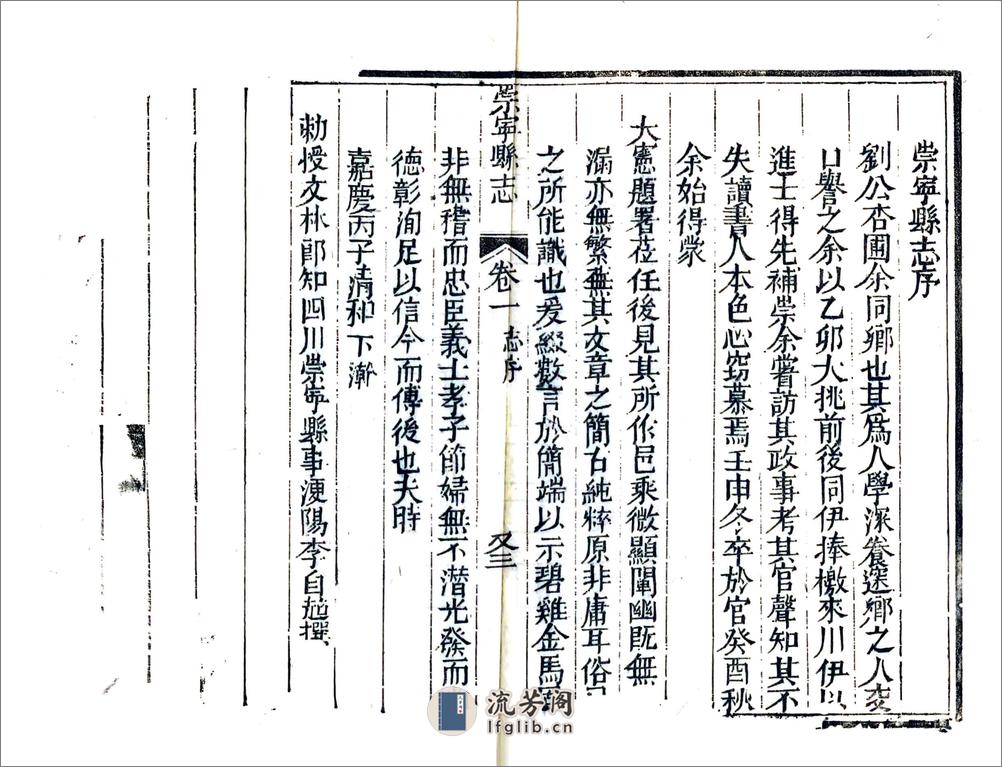 崇寧縣志序
劉公杏圃余同鄉也其為人學深養邃鄉之人交
口譽之余以乙卯大挑前後同伊捧檄來川伊以
進士得先補崇余嘗訪其政事考其官聲知其不
失讀書人本色心窃慕焉壬申冬卒於官癸酉秋
余始得蒙
大憲題署莅任後見其所作邑乘微顯闡幽既無
漏亦無繁蕪其文章之簡古純粹原非庸耳俗
之所能識也爰綴数言於簡端以示碧雞金馬
崇寧縣志
卷一
志序
又三
非無稽而忠臣義士孝子節婦無不潛光發而
德彰洵足以信今而傳後也夫時
嘉慶丙子清和下澣
勅授文林郎知四川崇寧縣事浭陽李自㴒撰
流芳阁
lfglib.cn